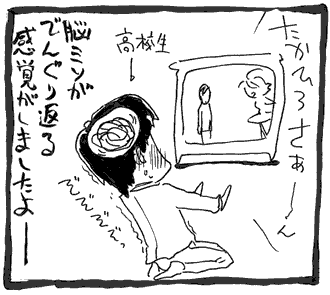 たかひろさぁーん
高校生
脳ミソが
でんぐり返る
感覚がしましたよー
ぞぞぞぞぞっ